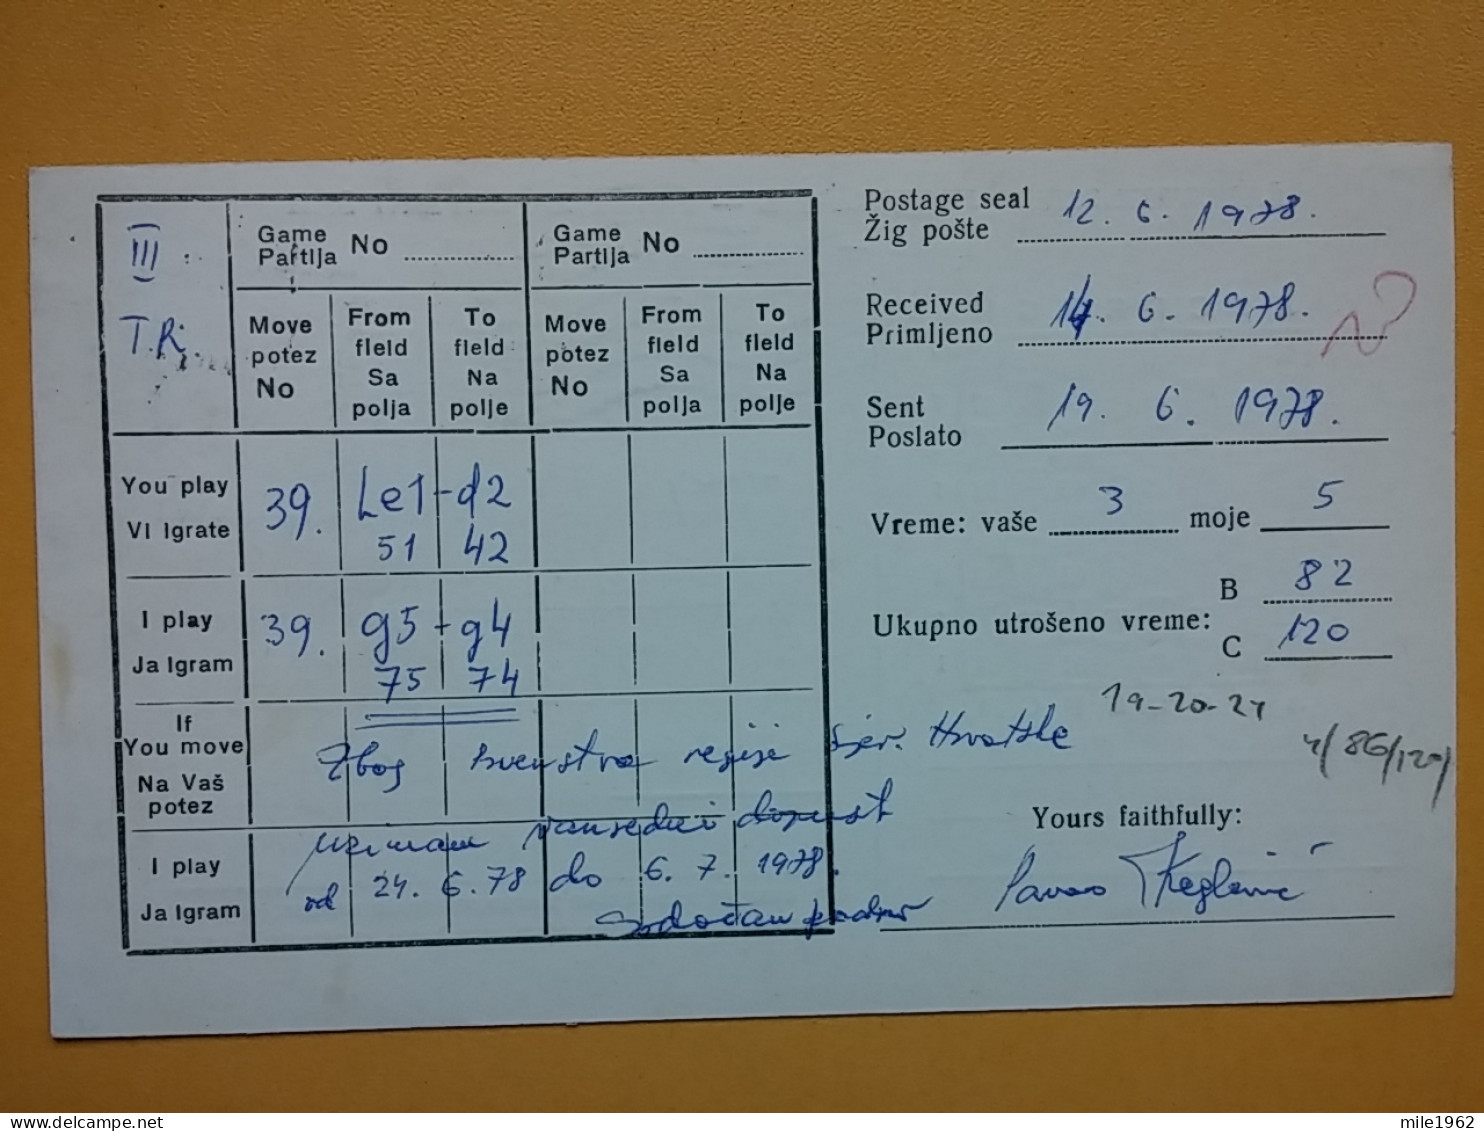 III
T.R.
Game
Partija No
Game
Partija No
Move
potez
No
From
field
Sa
polja
To
field
Na
polje
Move
potez
No
From
field
Sa
polja
To
field
Na
polje
You play
Vi Igrate
39. Le1-d2
51 42
I play
Ja Igram
39. g5-g4
75 74
If
You move
Na Vaš
potez
Zbog prvenstva regije Sjer. Hrvatske
I play
Ja Igram
uzimam vanredni dopust
od 24. 6. 78 do 6. 7. 1978.
Srdačan pozdrav
Postage seal
Žig pošte 12. 6. 1978.
Received
Primljeno 14. 6. 1978.
Sent
Poslato 19. 6. 1978.
Vreme: vaše 3 moje 5
Ukupno utrošeno vreme:
B 82
C 120
4/86/120/
Yours faithfully:
Pavao Keglević
mile1962